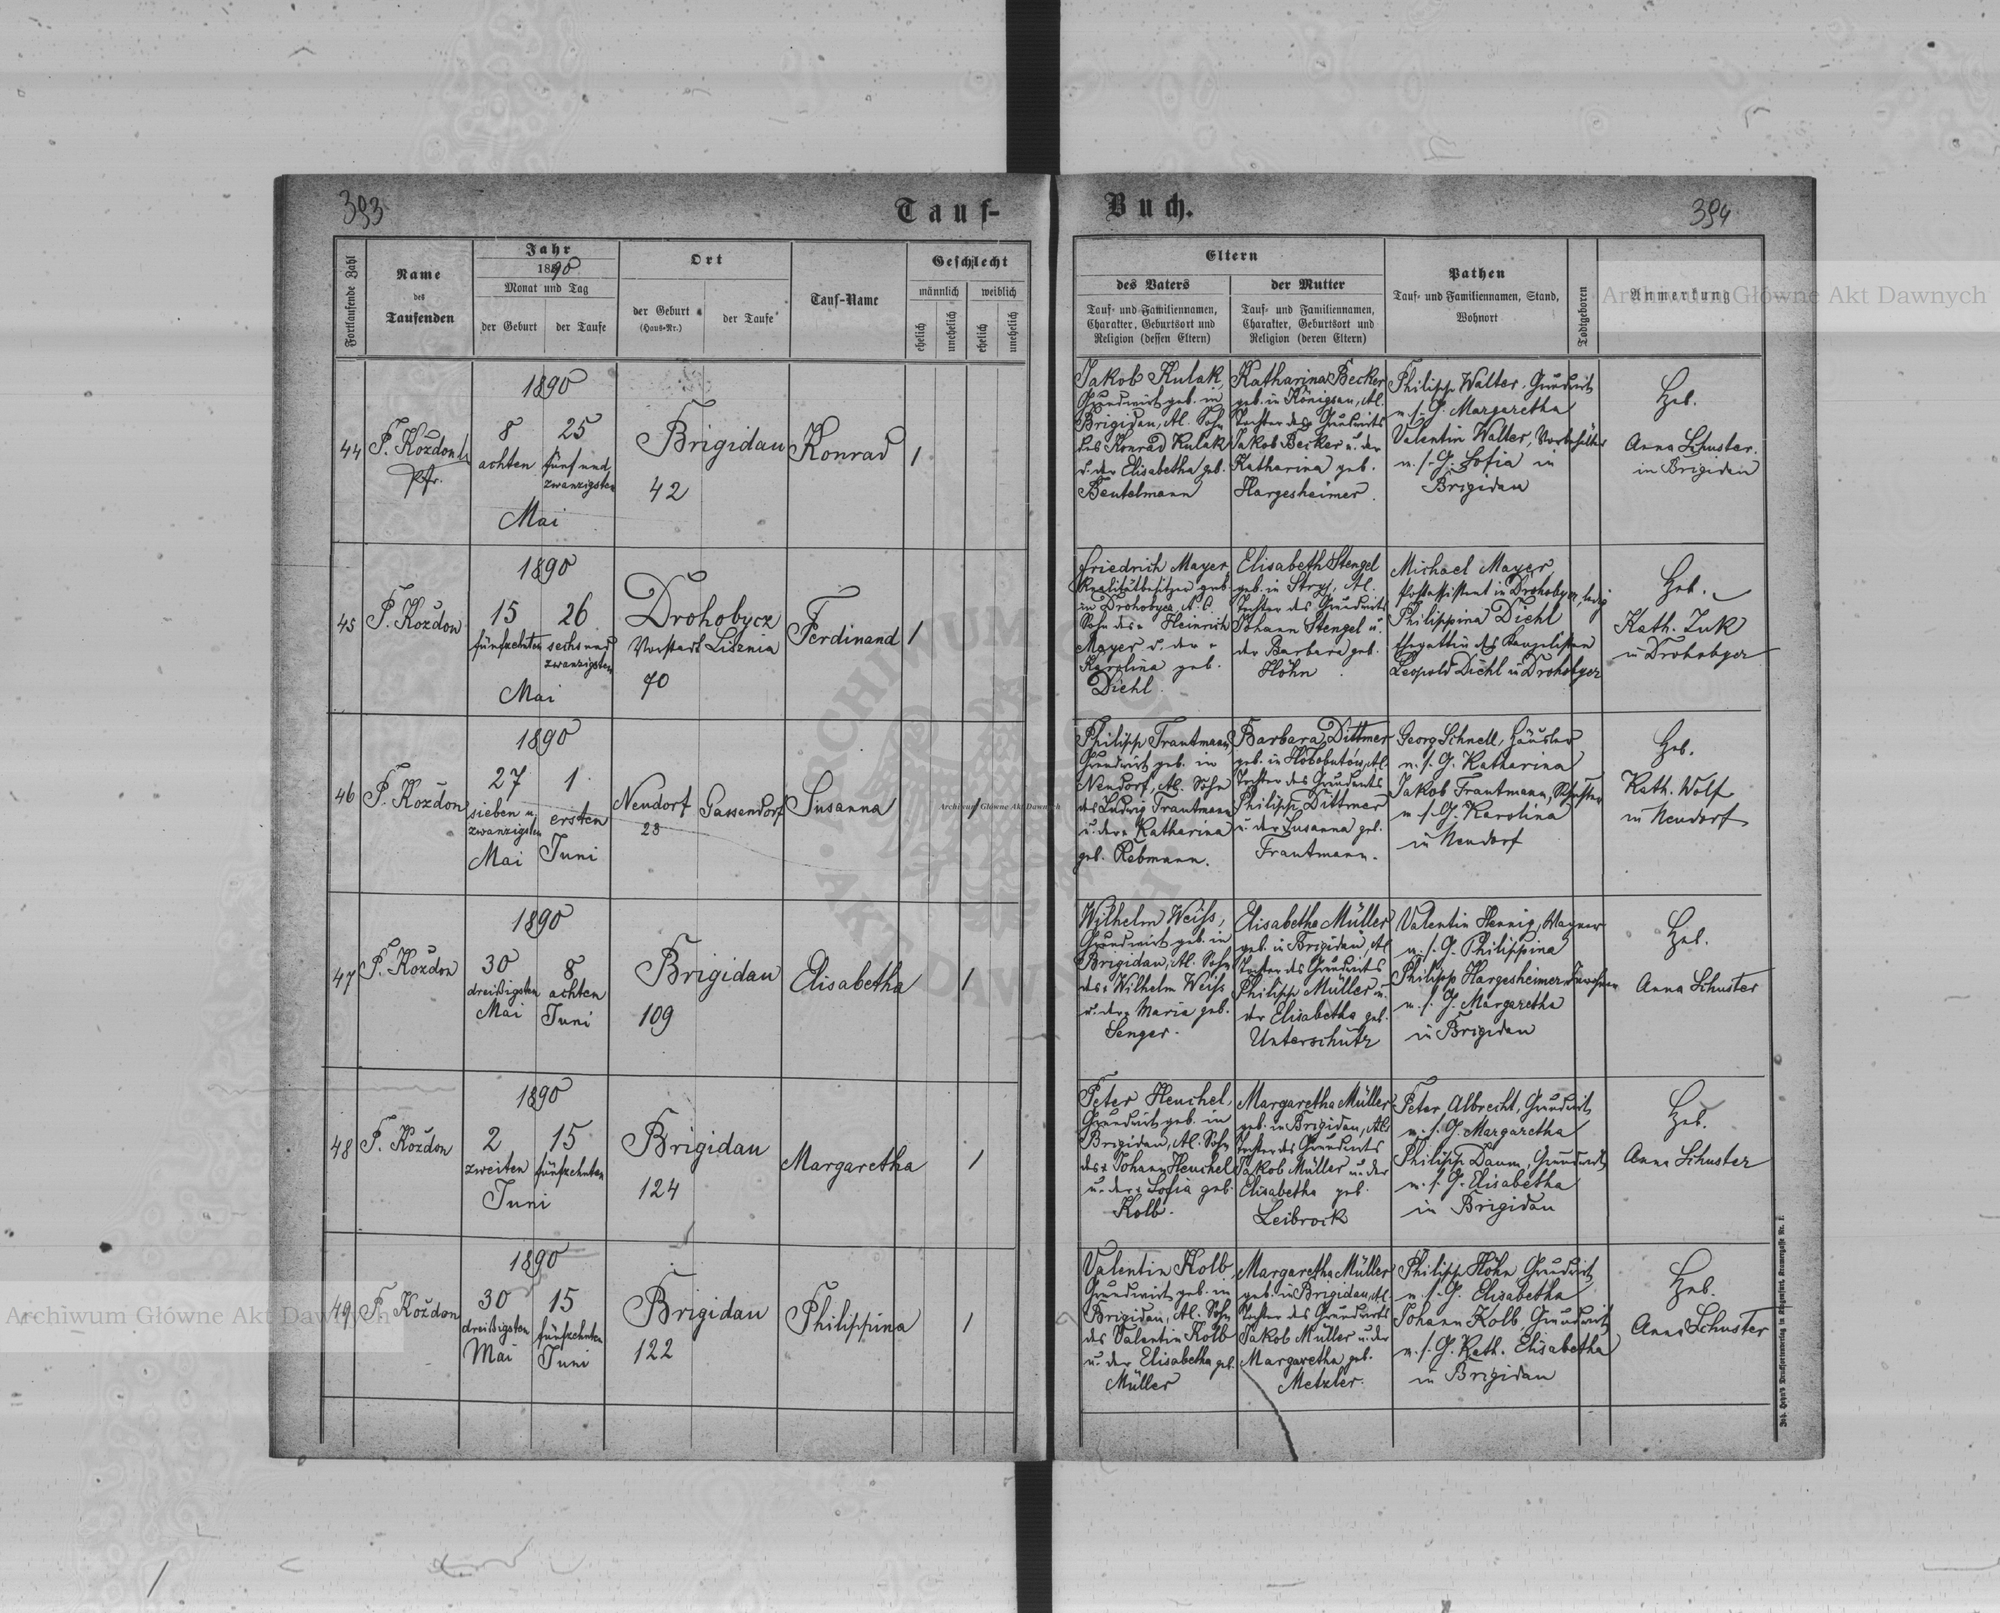 393
Tauf-
Buch.
394
Fortlaufende Zahl
Name
des
Taufenden
Jahr
1890
Monat und Tag
der Geburt
der Taufe
Ort
der Geburt
(Haus-Nr.)
der Taufe
Tauf-Name
Geschlecht
männlich
weiblich
ehelich
unehelich
ehelich
unehelich
Eltern
des Vaters
Tauf- und Familiennamen,
Charakter, Geburtsort und
Religion (dessen Eltern)
der Mutter
Tauf- und Familiennamen,
Charakter, Geburtsort und
Religion (deren Eltern)
Pathen
Tauf- und Familiennamen, Stand,
Wohnort
Todtgeboren
Anmerkung
44
F. Kozdon
Pfr.
1890
8
achten
25
fünf und
zwanzigsten
Mai
Brigidau
42
Konrad
1
Jakob Kulak,
Grundwirt geb. in
Brigidau, A.C. Sohn
des Konrad Kulak
u. der Elisabetha geb.
Beutelmann
Katharina Becker
geb. in Königsau, A.C.
Tochter des Grundwirts
Jakob Becker u. der
Katharina geb.
Hargesheimer.
Philipp Walter, Grundwirt
u. s. G. Margaretha
Valentin Walter,
u. s. G. Sofia in
Brigidau
Heb.
Anna Schuster
in Brigidau
45
F. Kozdon
1890
15
fünfzehnten
26
sechs und
zwanzigsten
Mai
Drohobycz
Vorstadt Lisznia
70
Ferdinand
1
Friedrich Mayer
Realitätbesitzer geb.
in Drohobycz A.C.
Sohn des Heinrich
Mayer u. der
Karolina geb.
Diehl
Elisabeth Stengel
geb. in Stryj, A.C.
Tochter des Grundwirts
Johann Stengel u.
der Barbara geb.
Höhn.
Michael Mayer,
Postassistent in Drohobycz, ledig
Philippina Diehl
Ehegattin des Kanzelisten
Leopold Diehl in Drohobycz
Heb.
Kath. Zuk
in Drohobycz
46
F. Kozdon
1890
27
sieben u.
zwanzigsten
Mai
1
ersten
Juni
Neudorf
23
Gassendorf
Susanna
1
Philipp Trautmann
Grundwirt geb. in
Neudorf, A.C. Sohn
des Ludwig Trautmann
u. der Katharina
geb. Rebmann.
Barbara Dittmer
geb. in Hobobutów, A.C.
Tochter des Grundwirts
Philipp Dittmer
u. der Susanna geb.
Trautmann.
Georg Schnell, Häusler
u. s. G. Katharina
Jakob Trautmann, Schuster
u. s. G. Karolina
in Neudorf
Heb.
Kath. Wolf
in Neudorf
47
F. Kozdon
1890
30
dreißigsten
Mai
8
achten
Juni
Brigidau
109
Elisabetha
1
Wilhelm Weiss,
Grundwirt geb. in
Brigidau, A.C. Sohn
des Wilhelm Weiss
u. der Maria geb.
Senger.
Elisabetha Müller
geb. in Brigidau, A.C.
Tochter des Grundwirts
Philipp Müller u.
der Elisabetha geb.
Unterschütz
Valentin Hennig, Wagner
u. s. G. Philippina
Philipp Hargesheimer, Inwohner
u. s. G. Margaretha
in Brigidau
Heb.
Anna Schuster
48
F. Kozdon
1890
2
zweiten
15
fünfzehnten
Juni
Brigidau
124
Margaretha
1
Peter Heuchel,
Grundwirt geb. in
Brigidau, A.C. Sohn
des Johann Heuchel
u. der Sofia geb.
Kolb.
Margaretha Müller
geb. in Brigidau, A.C.
Tochter des Grundwirts
Jakob Müller u. der
Elisabetha geb.
Leibrock
Peter Albrecht, Grundwirt
u. s. G. Margaretha
Philipp Daum, Grundwirt
u. s. G. Elisabetha
in Brigidau
Heb.
Anna Schuster
49
F. Kozdon
1890
30
dreißigsten
Mai
15
fünfzehnten
Juni
Brigidau
122
Philippina
1
Valentin Kolb
Grundwirt geb. in
Brigidau, A.C. Sohn
des Valentin Kolb
u. der Elisabetha geb.
Müller
Margaretha Müller
geb. in Brigidau, A.C.
Tochter des Grundwirts
Jakob Müller u. der
Margaretha geb.
Metzler.
Philipp Höhn, Grundwirt
u. s. G. Elisabetha
Johann Kolb, Grundwirt
u. s. G. Kath. Elisabetha
in Brigidau
Heb.
Anna Schuster
Archiwum Główne Akt Dawnych
Archiwum Główne Akt Dawnych
Archiwum Główne Akt Dawnych